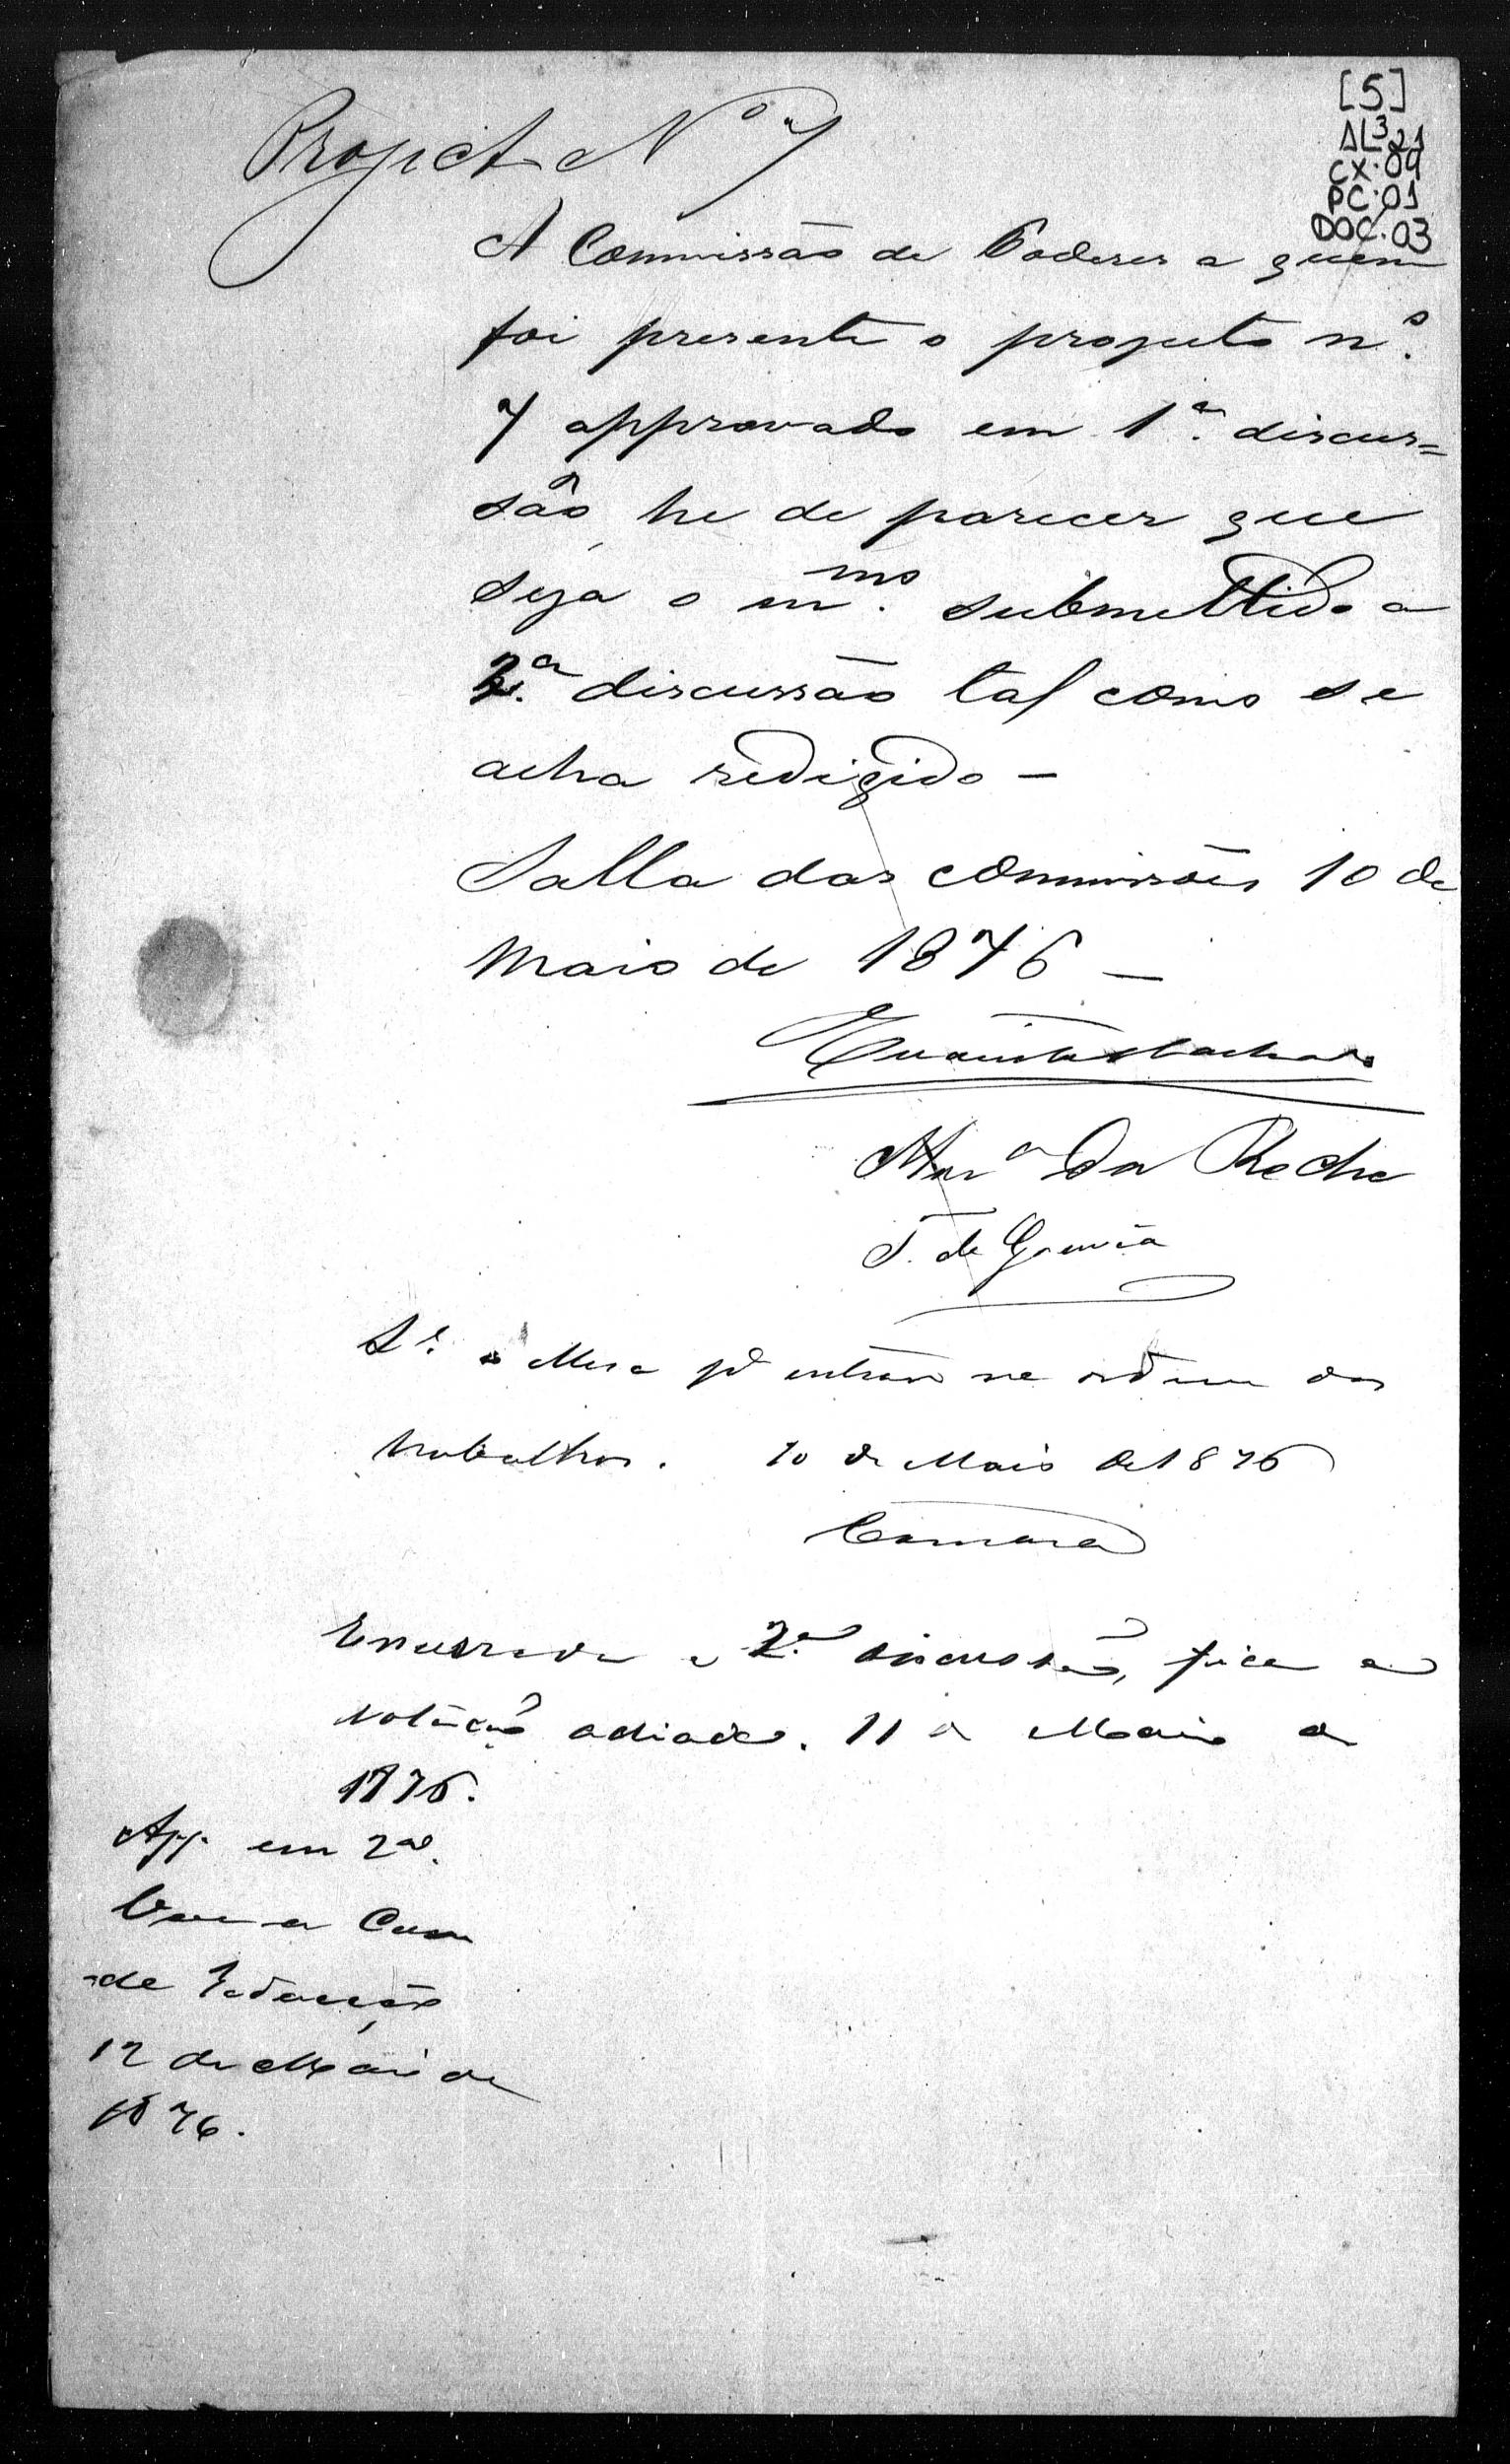 [5]
AL321
CX.09
PC.01
DOC.03
Project Nº 7
A Commissão de Poderes a quem
foi presente o projecto nº.
7 approvado em 1ª. discus=
são he de parecer que
seja o mmo. submettido a
2ª. discussão tal como se
acha redigido —
Salla das commissões 10 de
Maio de 1876 —
Evaristo Machado
da Rocha
J. de Gouvêa
Mesa pª entrar na ordem dos
trabalhos. 10 de Maio de 1876
Camara
Encerrada a 2ª. discussão, fica a
votação adiada. 11 de Maio de
1876.
App. em 2ª.
Vae a Com
de Redacção
12 de Maio de
1876.